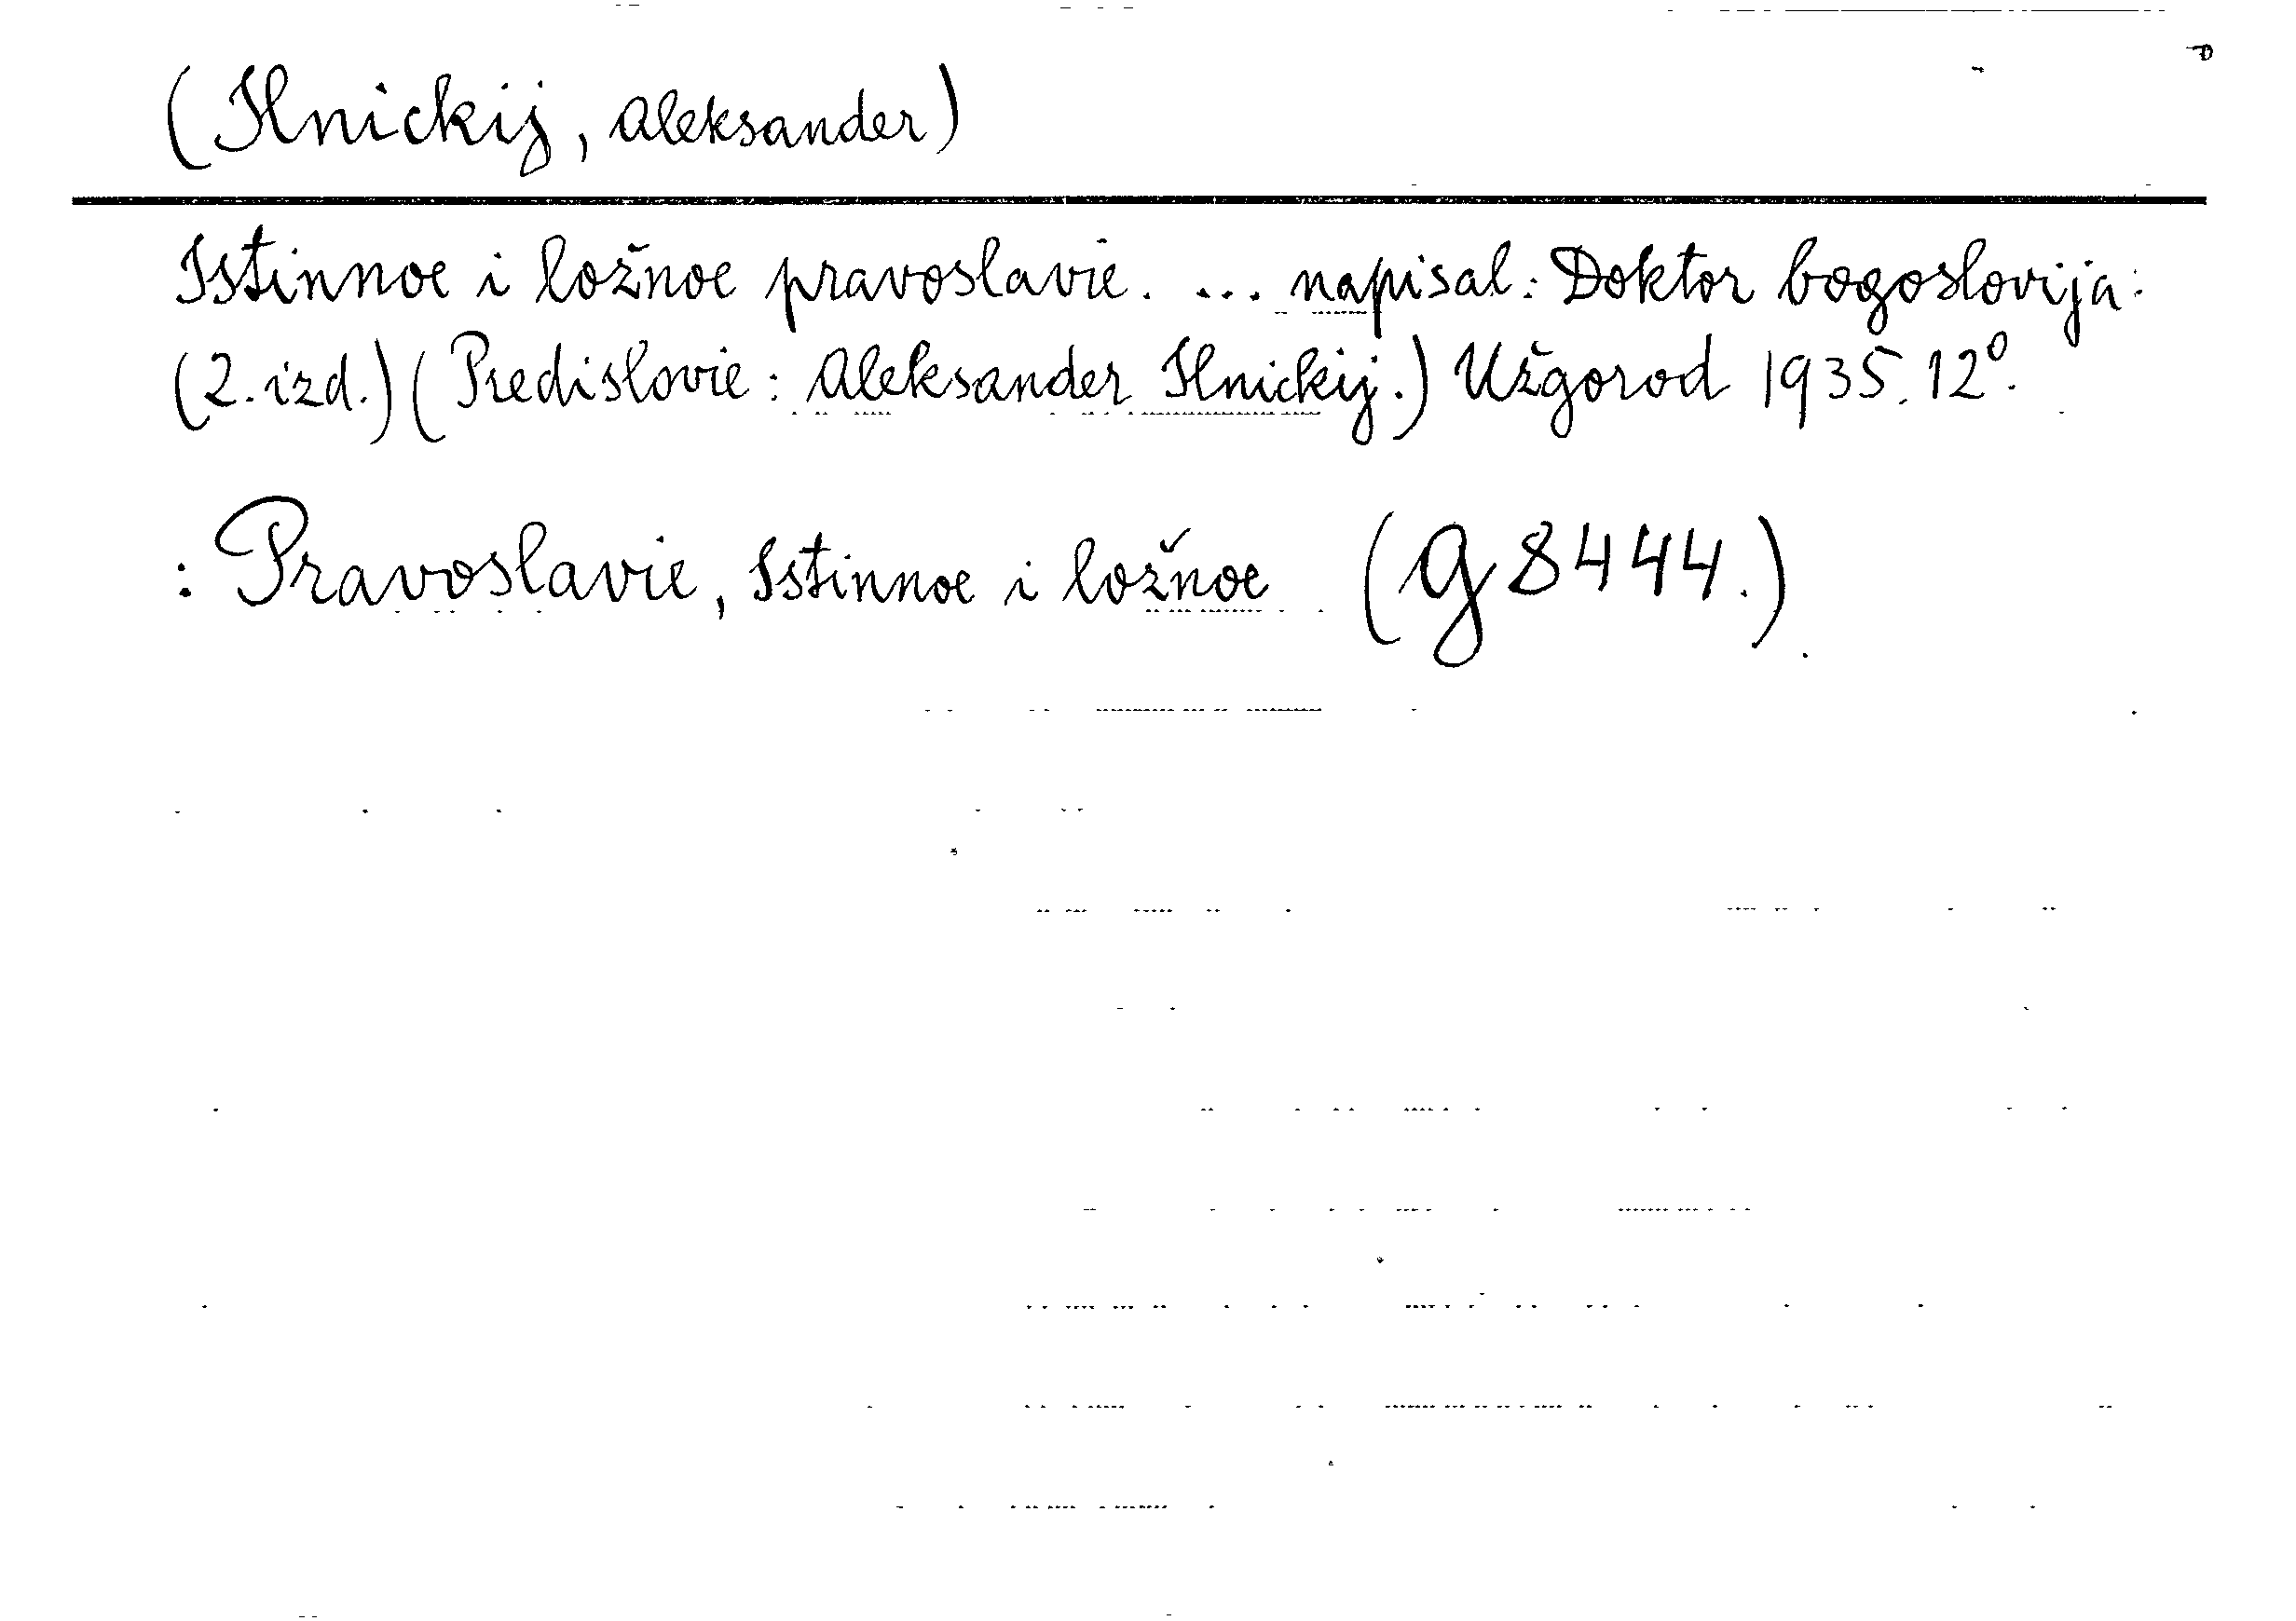 (Ilnickij, Aleksander)
Istinnoe i ložnoe pravoslavie. ... napisal: Doktor bogoslovija:
(2. izd.) (Predislovie: Aleksander Ilnickij.) Užgorod 1935. 12°.
: Pravoslavie, Istinnoe i ložnoe (G 8444.)